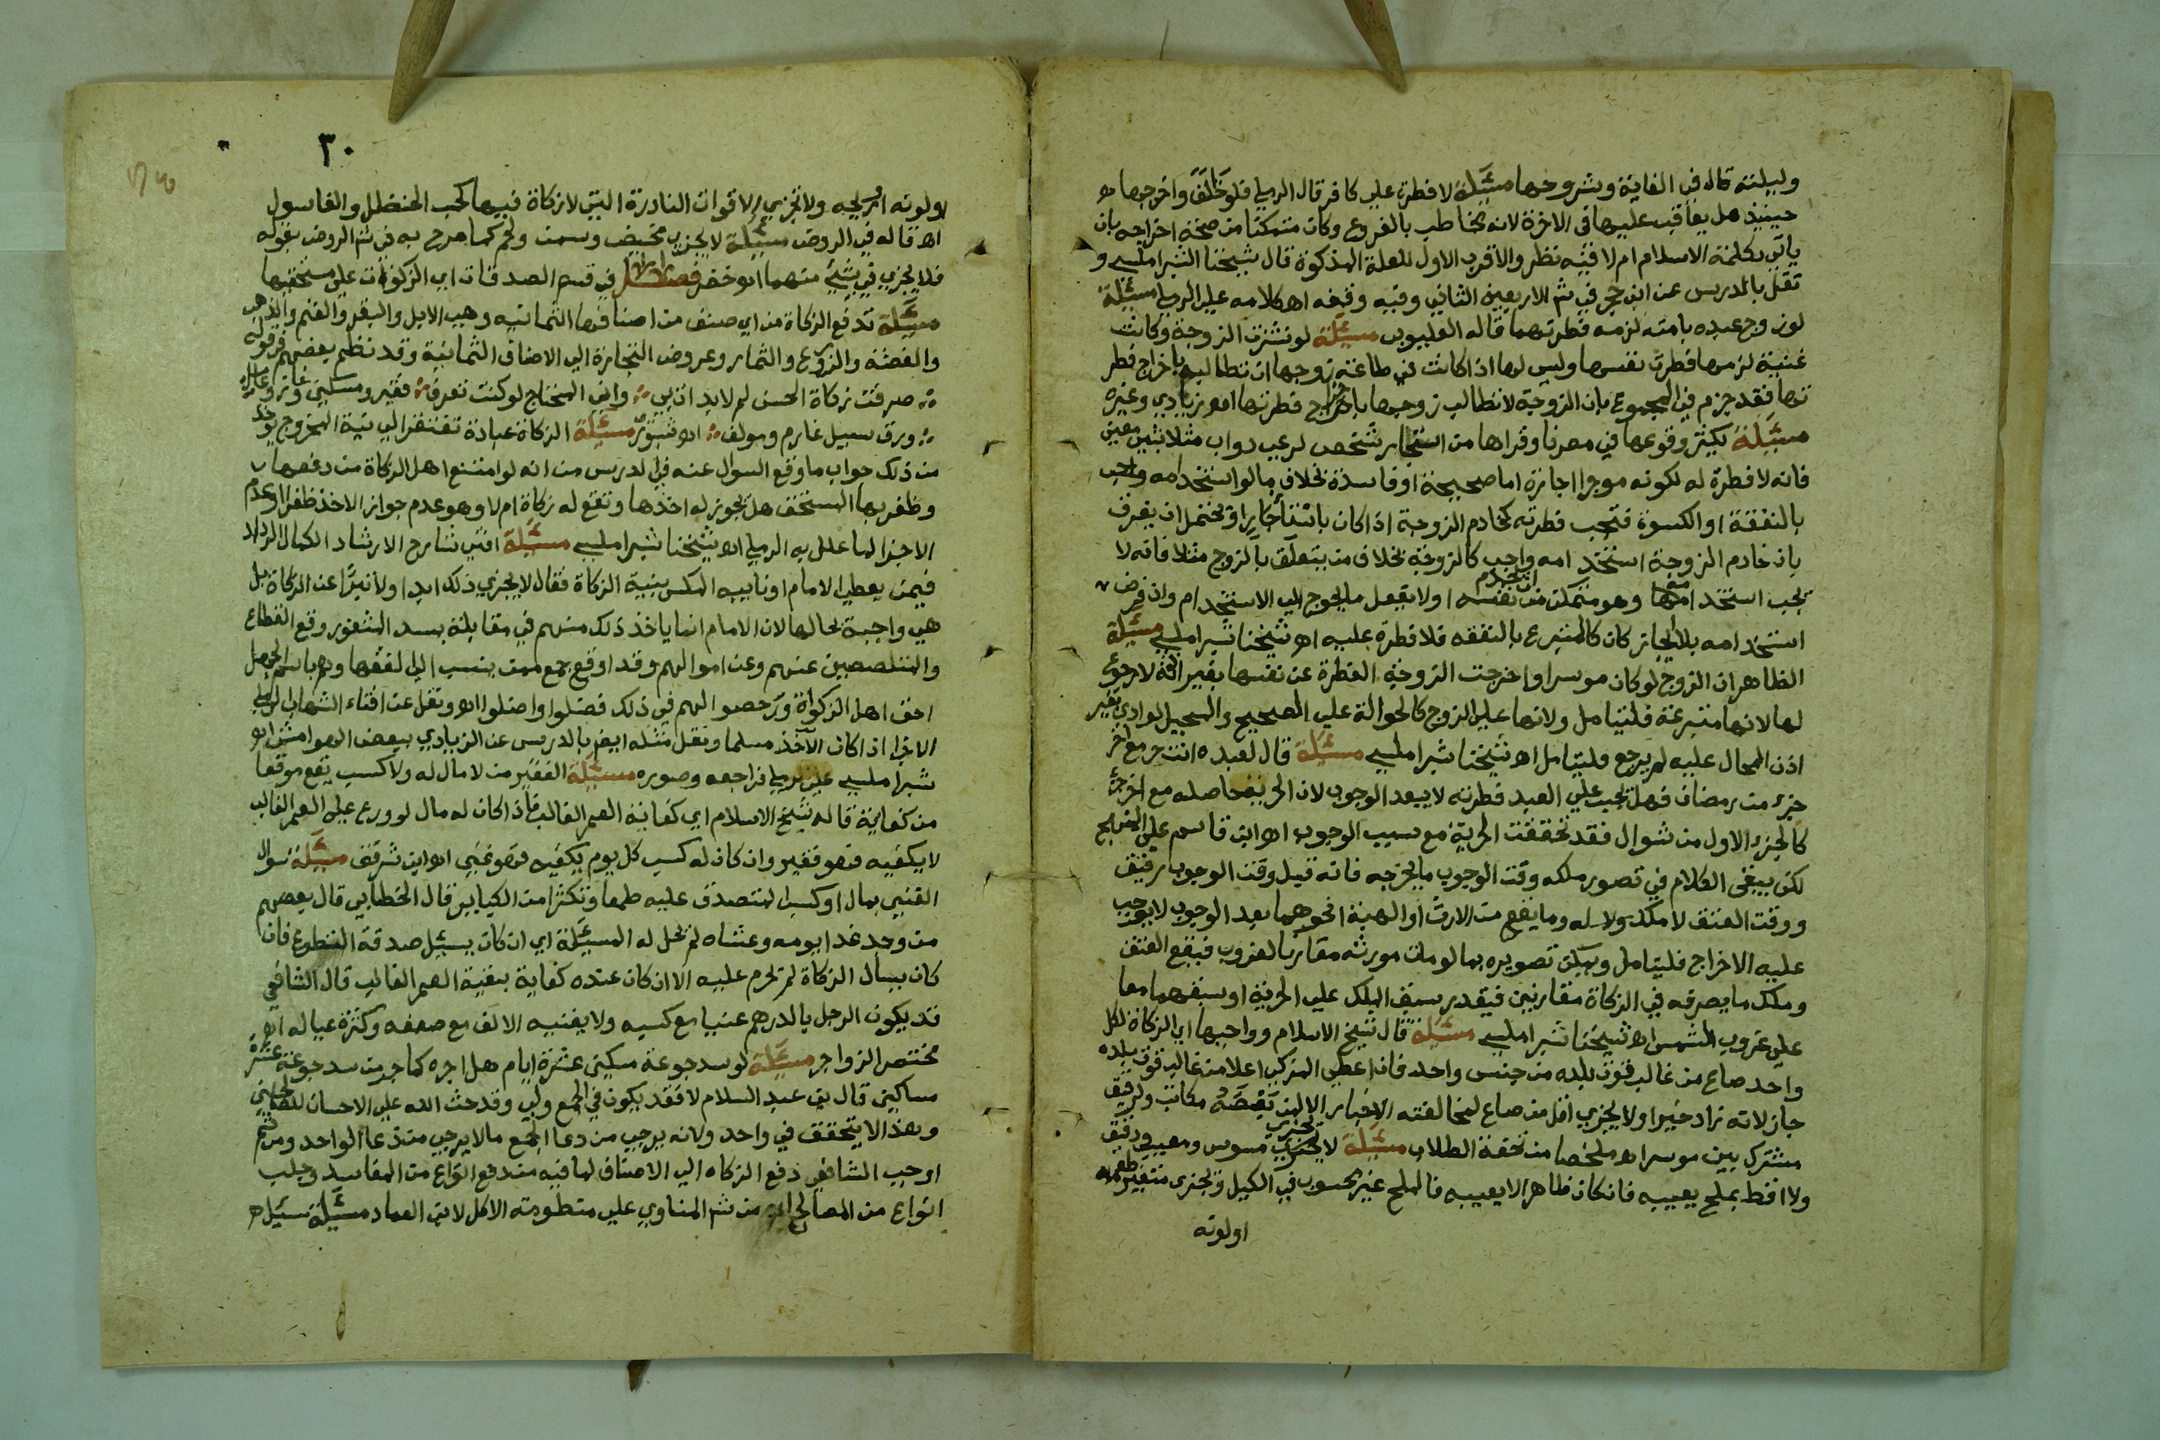 وليلته قاله في الغاية وشروحها مسئلة لا فطرة علي كافر قال الرملي فلو خالف واخرجها
حينيذ هل يعاقب عليها في الاخرة لانه مخاطب بالفروع وكان متمكنا من صحة اخراجه بان
ياتي بكلمة الاسلام ام لا فيه نظر والاقرب الاول للعلة المذكورة قال شيخنا الشبراملسي و
نقل بالدرس عن ابن حجر في شم الاربعين الثاني وفيه وقفه اه كلامه علي الرملي مسئلة
لوزوج عبده بامته لزمه فطرتهما قاله القليوبي مسئلة لو نشزت الزوجة وكانت
غنية لزمها فطرت نفسها وليس لها اذا كانت في طاعة زوجها ان تطالبه باخراج فطر
تها فقد جزم في المجموع بان الزوجة لا تطالب زوجها باخراج فطرتها اه زيادي وغيره
مسئلة يكثر وقوعها في مصرنا وقراها من استيجار شخص لرعي دواب مثلا بشئ معين
فانه لا فطرة له لكونه موجرا اجارة اما صحيحة او فاسدة بخلاف مالو استخدامه واجب
بالنفقة او الكسوة فتجب فطرته كخادم الزوجة اذا كان باستئجار او يحتمل ان يفرق
بان خادم الزوجة استخدامه واجب كالزوجة بخلاف من يتعلق بالزوج مثلا فانه لا
يجب استخدامها وهو متمكن من نفسه او لا يفعل ما يحوج الي الاستخدام وان فرض
استخدامه بلا ايجار كان كالمتبرع بالنفقه فلا فطرة عليه اه شيخنا شبراملسي مسئلة
الظاهر ان الزوج لو كان موسرا واخرجت الزوجة الفطرة عن نفسها بغير اذنه لا رجوع
لها لانها متبرعة فليتامل ولانها علي الزوج كالحوالة علي الصحيح والمحيل لو ادي بغير
اذن المحال عليه لم يرجع فليتامل اه شيخنا شبراملسي مسئلة قال لعبده انت حر مع اخر
جزء من رمضان فهل تجب علي العبد فطرته لا يبعد الوجوب لان الحرية حاصله مع اخر جزء
كالجزء الاول من شوال فقد تحققت الحرية مع سبب الوجوب اه ابن قاسم علي المنهج
لكن يبقي الكلام في تصور ملكه وقت الوجوب ما يخرجه فانه قبل وقت الوجوب رقيق
ووقت العتق لا ملك له وما يقع من الارث او الهبة او نحوهما بعد الوجوب لا يوجب
عليه الاخراج فليتامل ويمكن تصويره بما لو مات مورثه مقاربا لغروب فيقع العتق
وملك ما يصرفه في الزكاة مقارنين فيقدر سبق الملك علي الحرية او سبقهما معا
علي غروب الشمس اه شيخنا شبراملسي مسئلة قال شيخ الاسلام وواجبها اي الزكاة لكل
واحد صاع من غالب قوت بلده من جنس واحد فان اعطي المزكي اعلا من غالب قوت بلده
جاز لانه زاد خيرا ولا يجزي اقل من صاع لمخالفته الاخبار الا لمن بعضه مكاتب ولرقيق
مشترك بين موسر اه ملخصا من تحفة الطلاب مسئلة لا يجزي مسوس ومعيب ودقيق
ولا اقط بملح يعيبه فان كان ظاهرا لا يعيبه فالملح غير محسوب في الكيل ويجزي متغير طعمه
اولونه
٣٠
اولونه او ريحه ولا تجزي الاقوات النادرة التي لا زكاة فيها كحب الحنظل والغاسول
اه قاله في الروض مسئلة لا يجزي مخيض وسمن ولحم كما صرح به في شم الروض بقوله
فلا يجزي في شيئ منهما اه خضر فصل في قسم الصدقات اي الزكوات علي مستحقيها
مسئلة تدفع الزكاة من اي صنف من اصنافها الثمانيه وهي الابل والبقر والغنم والذهب
والفضة والزروع والثمار وعروض التجارة الي الاصناف الثمانية وقد نظم بعضهم في قوله
صرفت زكاة الحسن لم لا بدات بي واني المحتاج لو كنت تعرف فقير ومسكين وغاز وعامل
ورق سبيل غارم ومولف اه شنوري مسئلة الزكاة عبادة تفتقر الي نية المخرج يوخذ
من ذلك جواب ما وقع السوال عنه في الدرس من انه لو امتنع اهل الزكاة من دفعها
وظفر بها المستحق هل يجوز له اخذها وتقع له زكاة ام لا وهو عدم جواز الاخذ ظفرا وعدم
الاجزا لما علل به الرملي اه شيخنا شبراملسي مسئلة افتي شارح الارشاد الكمال الرداد
فيمن يعطي الامام او نايبه المكس بنية الزكاة فقال لا يجزي ذلك ابدا ولا تبرا عن الزكاة بل
هي واجبة بحالها لان الامام انما ياخذ ذلك منهم في مقابلة بسد الثغور وقع القطاع
والمتلصصين عنهم وعن اموالهم وقد اوقع جمع ممن ينسب الي الفقها وهم باسم الجهل
احق اهل الزكواة ورخصوا لهم في ذلك فضلوا واضلوا اه ونقل عن افتاء الشهاب الرملي
الاجزا اذا كان الآخذ مسلما ونقل مثله ايض بالدرس عن الزيادي ببعض الهوامش اه
شبراملسي علي رملي فراجعه وصوره مسئلة الفقير من لا مال له ولا كسب يقع موقعا
من كفاية قاله شيخ الاسلام اي كفاية العمر الغالب فاذا كان له مال لو وزع علي العمر الغالب
لا يكفيه فهو فقير وان كان له كسب كل يوم يكفيه فهو غني اه ابن شرقف مسئلة سوال
الغني بمال او كسب لمتصدق عليه طمعا وتكثرا من الكباير قال الخطابي قال بعضهم
من وجد غدا يومه وعشاه لم تحل له المسئلة اي ان كان يسئل صدقة التطوع فان
كان يسأل الزكاة لم تحرم عليه الا ان كان عنده كفاية بقية العمر الغالب قال الشافعي
قد يكون الرجل بالدرهم غنيا مع كسبه ولا يغنيه الالف مع ضعفه وكثرة عياله اه
مختصر الزواجر مسئلة لو سد جوعة مسكين عشرة ايام هل اجره كما جر من سد جوعة عشرة
مساكين قال بن عبد السلام لا فقد يكون في الجمع ولي وقد حث الله علي الاحسان للصالحين
وهذا لا يتحقق في واحد ولانه يرجي من دعا الجمع مالا يرجي من دعا الواحد ومن ثم
اوجب الشافعي دفع الزكاه الي الاصناف لما فيه من دفع انواع من المفاسد وجلب
انواع من المصالح اه من شم المناوي علي منظومته الاكل لابن العماد مسئلة سئل